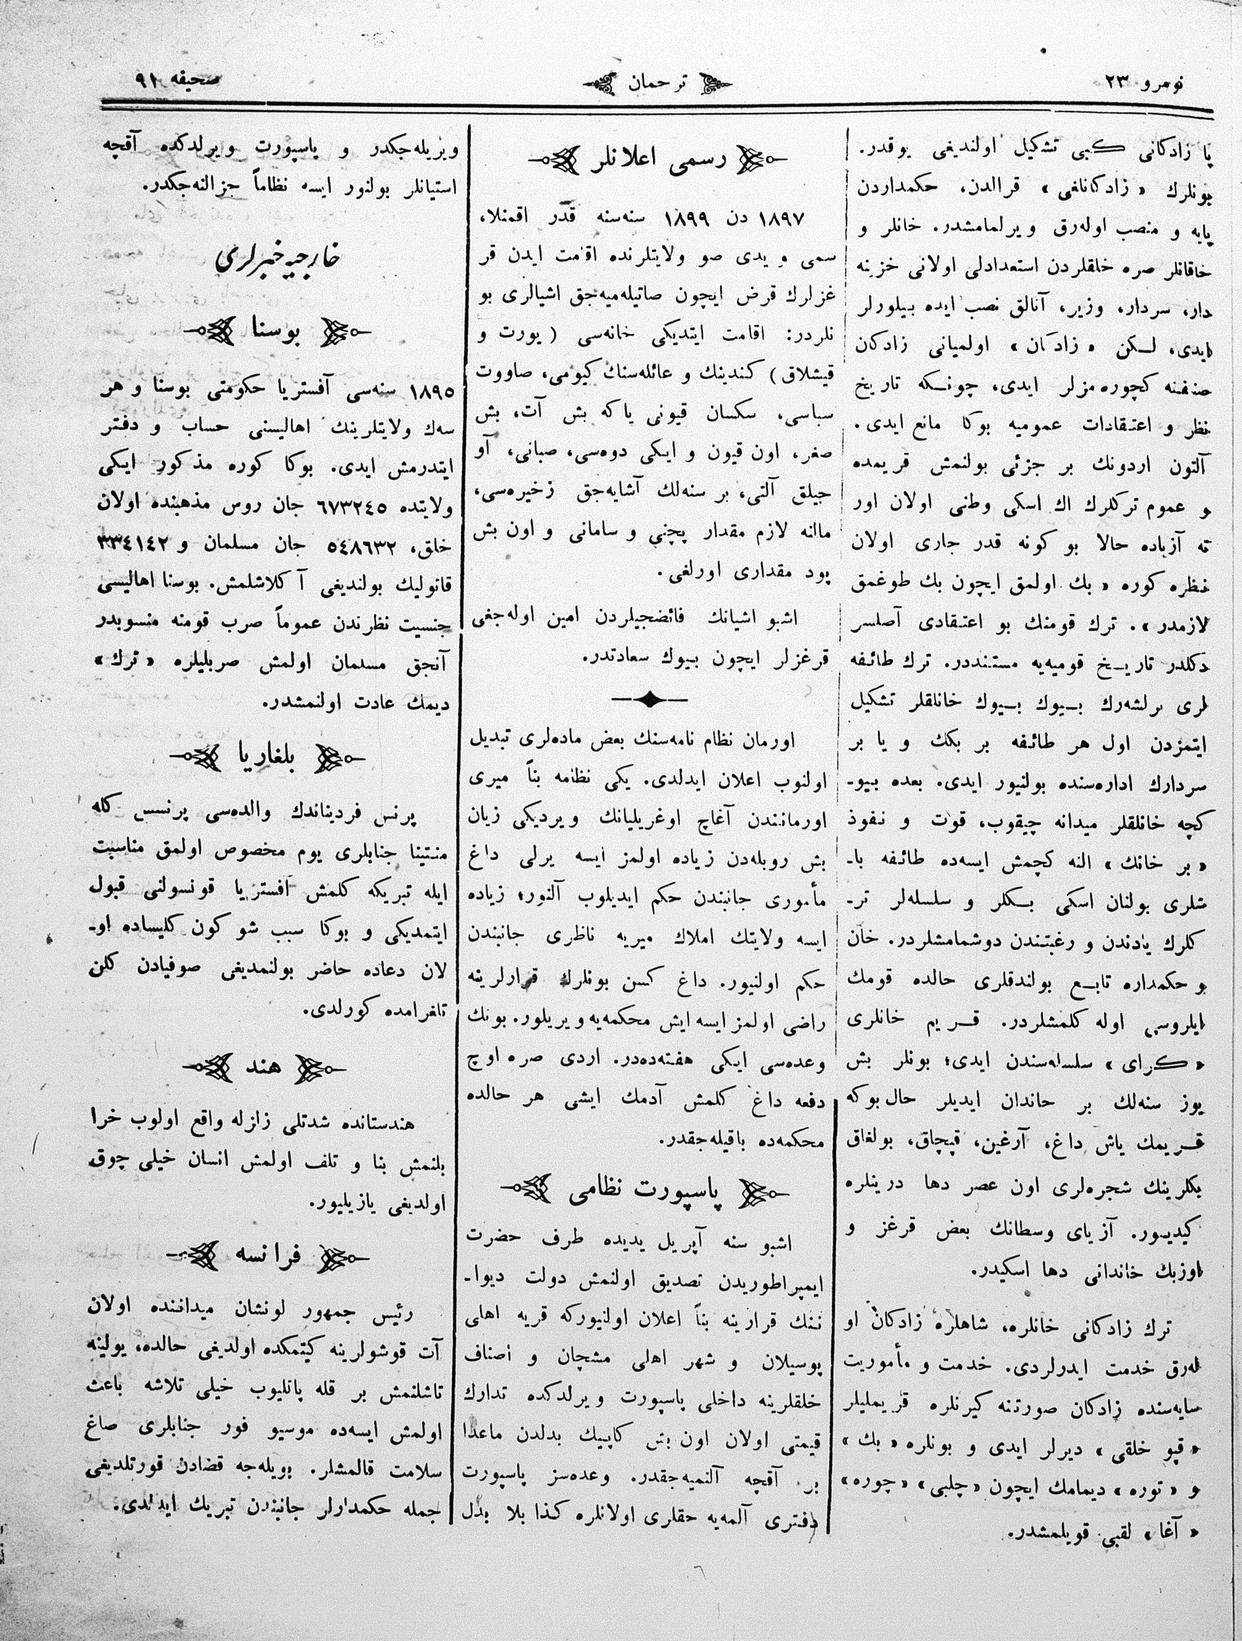 نومرو ٢٣
ترجمان
صحیفه ٩١
یا زادکانی کبی تشکیل اولندیغی یوقدر.
بونلرك «زادکانلغی» قرالدن، حکمداردن
پایه و منصب اوله‌رق ویرلمامشدر. خانلر و
خاقانلر صره خلقلردن استعدادلی اولانی خزینه
دار، سردار، وزیر، آتالق نصب ایده بیلورلر
ایدی، لـکن «زادکان» اولمیانی زادکان
صنفنه کچوره‌مزلر ایدی، چونـکه تاریخ
نظر و اعتقادات عمومیه بوکا مانع ایدی.
آلتون اردونك بر جزئی بولنمش قریمده
و عموم ترکلرك اك اسکی وطنی اولان اور
ته آزیاده حالا بو کونه قدر جاری اولان
نظره کوره «بك اولمق ایچون بك طوغمق
لازمدر». ترك قومنك بو اعتقادی آصلسر
دکلدر تاریـخ قومیه‌یه مستنددر. ترك طائفه
لری برلشه‌رك بـیوك بـیوك خانلقلر تشکیل
ایتمزدن اول هر طائفه بر بکك و یا بر
سردارك اداره‌سنده بولنیور ایدی. بعده بیو-
کچه خانلقلر میدانه چیقوب، قوت و نفوذ
«بر خانك» النه کچمش ایسه‌ده طائفه با-
شلری بولنان اسکی بـکلر و سلسله‌لر تر-
کلرك یادندن و رغبتندن دوشمامشلردر. خان
و حکمداره تابـع بولندقلری حالده قومك
ایلروسی اوله کلمشلردر. قـریم خانلری
«کـرای» سلسله‌سندن ایدی؛ بونلر بش
یوز سنه‌لك بر خاندان ایدیلر حال‌بوکه
قـریمك یاش داغ، آرغین، قپچاق، بولغاق
بکلرینك شجره‌لری اون عصر دها درینلره
کیدیـور. آزیای وسطانك بعض قرغز و
اوزبك خاندانی دها اسکیدر.
ترك زادکانی خانلره، شاهلره زادکان او
له‌رق خدمت ایدرلردی. خدمت و مأموریت
سایه‌سنده زادکان صورتنه کیرنلره قریملیلر
«قپو خلقی» دیرلر ایدی و بونلره «بك»
و «توره» دیمامك ایچون «چلبی» «چوره»
«آغا» لقبی قویلمشدر.
رسمی اعلانلر
١٨٩٧ دن ١٨٩٩ سنه‌سنه قدر اقمنلا،
سمی و یدی صو ولایتلرنده اقامت ایدن قر
غزلرك قرض ایچون صاتیله‌میه‌جق اشیالری بو
نلردر: اقامت ایتدیکی خانه‌سی (یورت و
قیشلاق) کندینك و عائله‌سنك کیومی، صاووت
سباسی، سکسان قیونی یاکه بش آت، بش
صغر، اون قیون و ایکی دوه‌سی، صبانی، آو
جیلق آلتی، بر سنه‌لك آشایه‌جق زخیره‌سی،
مالنه لازم مقدار پچنی و سامانی و اون بش
پود مقداری اورلغی.
اشبو اشیانك فائضجیلردن امین اوله‌جغی
قرغزلر ایچون بـیوك سعادتدر.
اورمان نظام نامه‌سنك بعض ماده‌لری تبدیل
اولنوب اعلان ایدلدی. یکی نظامه بناً میری
اورمانندن آغاچ اوغریلیانك ویردیکی زیان
بش روبله‌دن زیاده اولمز ایسه یرلی داغ
مأموری جانبندن حکم ایدیلوب آلنور؛ زیاده
ایسه ولایتك املاك میریه ناظری جانبندن
حکم اولنیور. داغ کسن بونلرك قرارلرینه
راضی اولمز ایسه ایش محکمه‌یه ویریلور. بونك
وعده‌سی ایکی هفته‌ده‌در. اردی صره اوچ
دفعه داغ کلمش آدمك ایشی هر حالده
محکمه‌ده باقیله‌جقدر.
پاسپورت نظامی
اشبو سنه آپریل یدیده طرف حضرت
ایمپراطوریدن تصدیق اولنمش دولت دیوا-
ننك قرارینه بناً اعلان اولنیورکه قریه اهلی
پوسیلان و شهر اهلی مشچان و اصناف
خلقلرینه داخلی پاسپورت ویرلدکده تدارك
قیمتی اولان اون بش کاپیك بدلدن ماعدا
بر آقچه آلنمیه‌جقدر. وعده‌سز پاسپورت
دفتری آلمه‌یه حقلری اولانلره کذا بلا بدل
ویریله‌جکدر و پاسپورت ویرلدکده آقچه
استیانلر بولنور ایسه نظاماً جزالنه‌جکدر.
خارجیه خبرلری
بوسنا
١٨٩٥ سنه‌سی آفستریا حکومتی بوسنا و هر
سه‌ك ولایتلرینك اهالیسنی حساب و دفتر
ایتدرمش ایدی. بوکا کوره مذکور ایکی
ولایتده ٦٧٣٢٤٥ جان روس مذهبنده اولان
خلق، ٥٤٨٦٣٢ جان مسلمان و ٣٣٤١٤٢
قاتولیك بولندیغی آکلاشلمش. بوسنا اهالیسی
جنسیت نظرندن عموماً صرب قومنه منسوبدر
آنجق مسلمان اولمش صربلیلره «ترك»
دیمك عادت اولنمشدر.
بلغاریا
پرنس فردیناندك والده‌سی پرنسس کله
منتینا جنابلری یوم مخصوص اولمق مناسبت
ایله تبریکه کلمش آفستریا قونسولنی قبول
ایتمدیکی و بوکا سبب شو کون کلیساده او-
لان دعاده حاضر بولنمدیغی صوفیادن کلن
تلغرامده کورلدی.
هند
هندستانده شدتلی زلزله واقع اولوب خرا
بلنمش بنا و تلف اولمش انسان خیلی چوق
اولدیغی یازیلیور.
فرانسه
رئیس جمهور لونشان میداننده اولان
آت قوشولرینه کیتمکده اولدیغی حالده، یولینه
تاشلنمش بر قله پاتلیوب خیلی تلاشه باعث
اولمش ایسه‌ده موسیو فور جنابلری صاغ
سلامت قالمشلر. بویله‌جه قضادن قورتلدیغی
جمله حکمدارلر جانبندن تبریك ایدلدی.